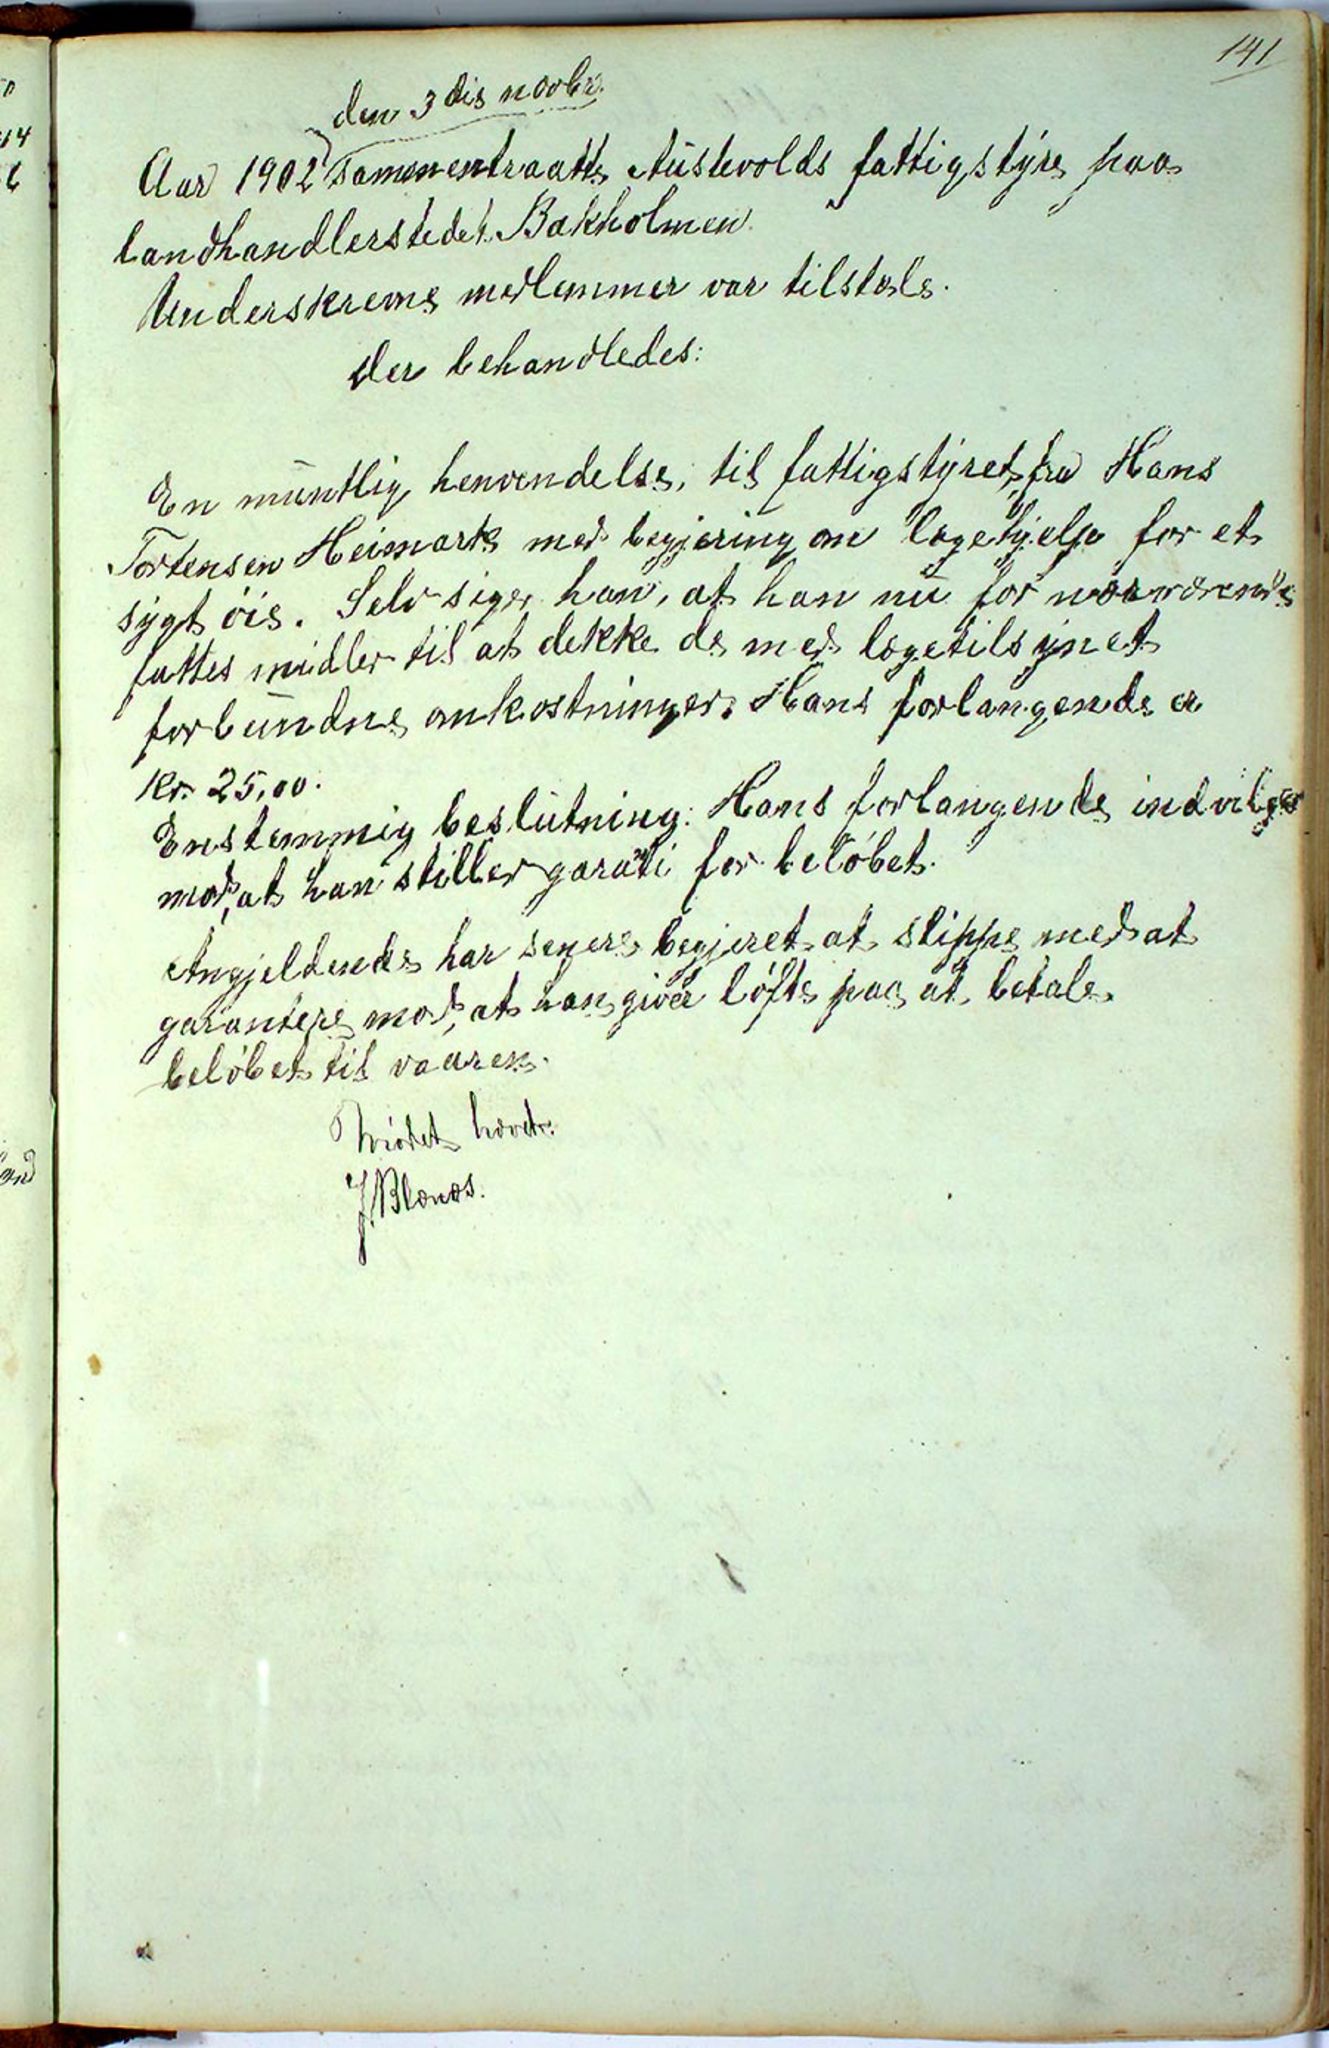 141
den 3die novbr.
Aar 1902 sammentraatte Austevolds fattigstyre paa
landhandlerstedet Bakholmen.
Underskrevne medlemmer var tilstede.
Der behandledes:
En muntlig henvendelse, til fattigstyret, fra Hans
Tortensen Heimark med begjering om lægehjelp for et
sygt öie. Selv siger han, at han nu for nærværende
fattes midler til at dekke de med lægetilsynet
forbundne omkostninger. Hans forlangende er
kr. 25,00.
Enstemmig beslutning: Hans forlangende indvilges
mod, at han stiller garati for belöbet.
Angjeldende har senere begjeret at slippe med at
garantere mod, at han giver löfte paa at betale
belöbet til vaaren.
Mödet hævet.
J. Blænæs.